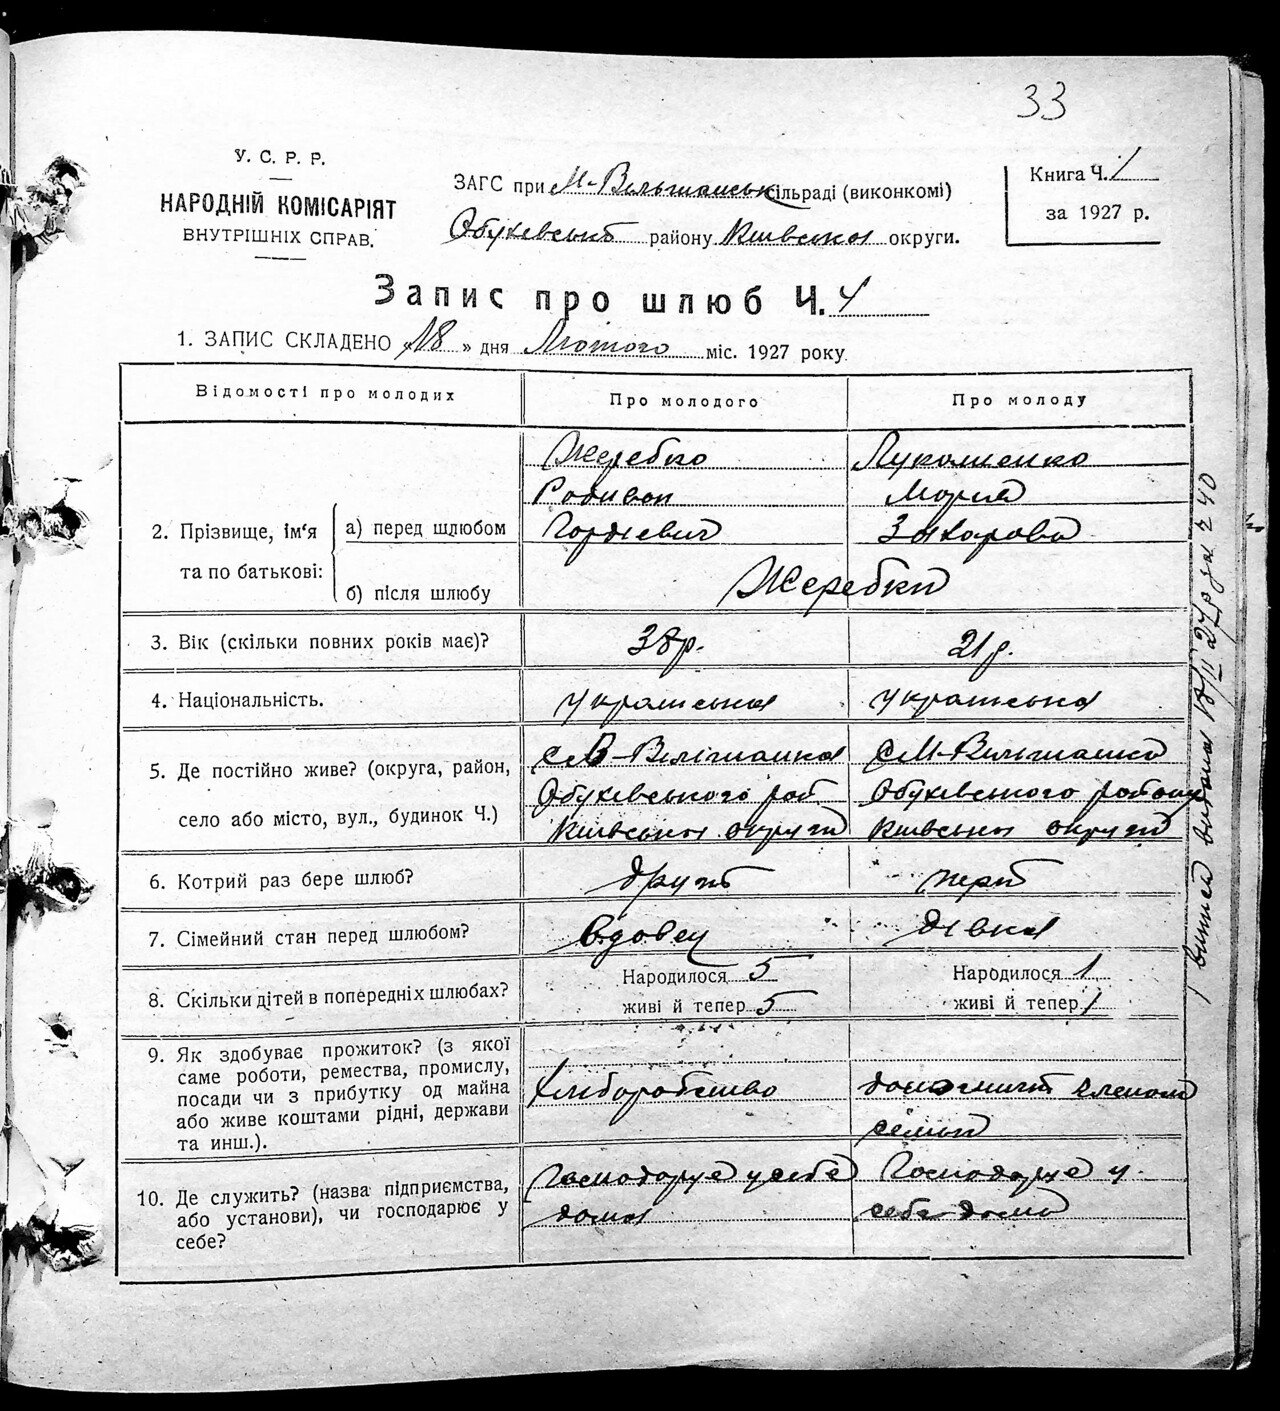 33
У. С. Р. Р.
НАРОДНІЙ КОМІСАРІЯТ
ВНУТРІШНІХ СПРАВ.
ЗАГС при М-Вільшанськ сільраді (виконкомі)
Обухівський району Київської округи.
Книга Ч. 1
за 1927 р.
Запис про шлюб Ч. 4
1. ЗАПИС СКЛАДЕНО «18» дня Лютого міс. 1927 року
Відомості про молодих Про молодого Про молоду
2. Прізвище, ім'я та по батькові:
а) перед шлюбом
Жеребко Лукашенко
Родивон Мария
Гордієвич Захарова
б) після шлюбу Жеребки
3. Вік (скільки повних років має)? 38р. 21р.
4. Національність. українська українська
5. Де постійно живе? (округа, район, село або місто, вул., будинок Ч.)
с В-Вільшанка с М-Вільшанка
Обухівського рай. Обухівського району
Київської округи Київської округи
6. Котрий раз бере шлюб? другий перший
7. Сімейний стан перед шлюбом? вдовец дівка
8. Скільки дітей в попередніх шлюбах? Народилося 5 Народилося 1
живі й тепер 5 живі й тепер 1
9. Як здобуває прожиток? (з якої
саме роботи, ремества, промислу,
посади чи з прибутку од майна
або живе коштами рідні, держави
та инш.).
Хліборобство членом
семьи
10. Де служить? (назва підприємства,
або установи), чи господарює у
себе?
Господарує у себе Господарує у
дома себе дома